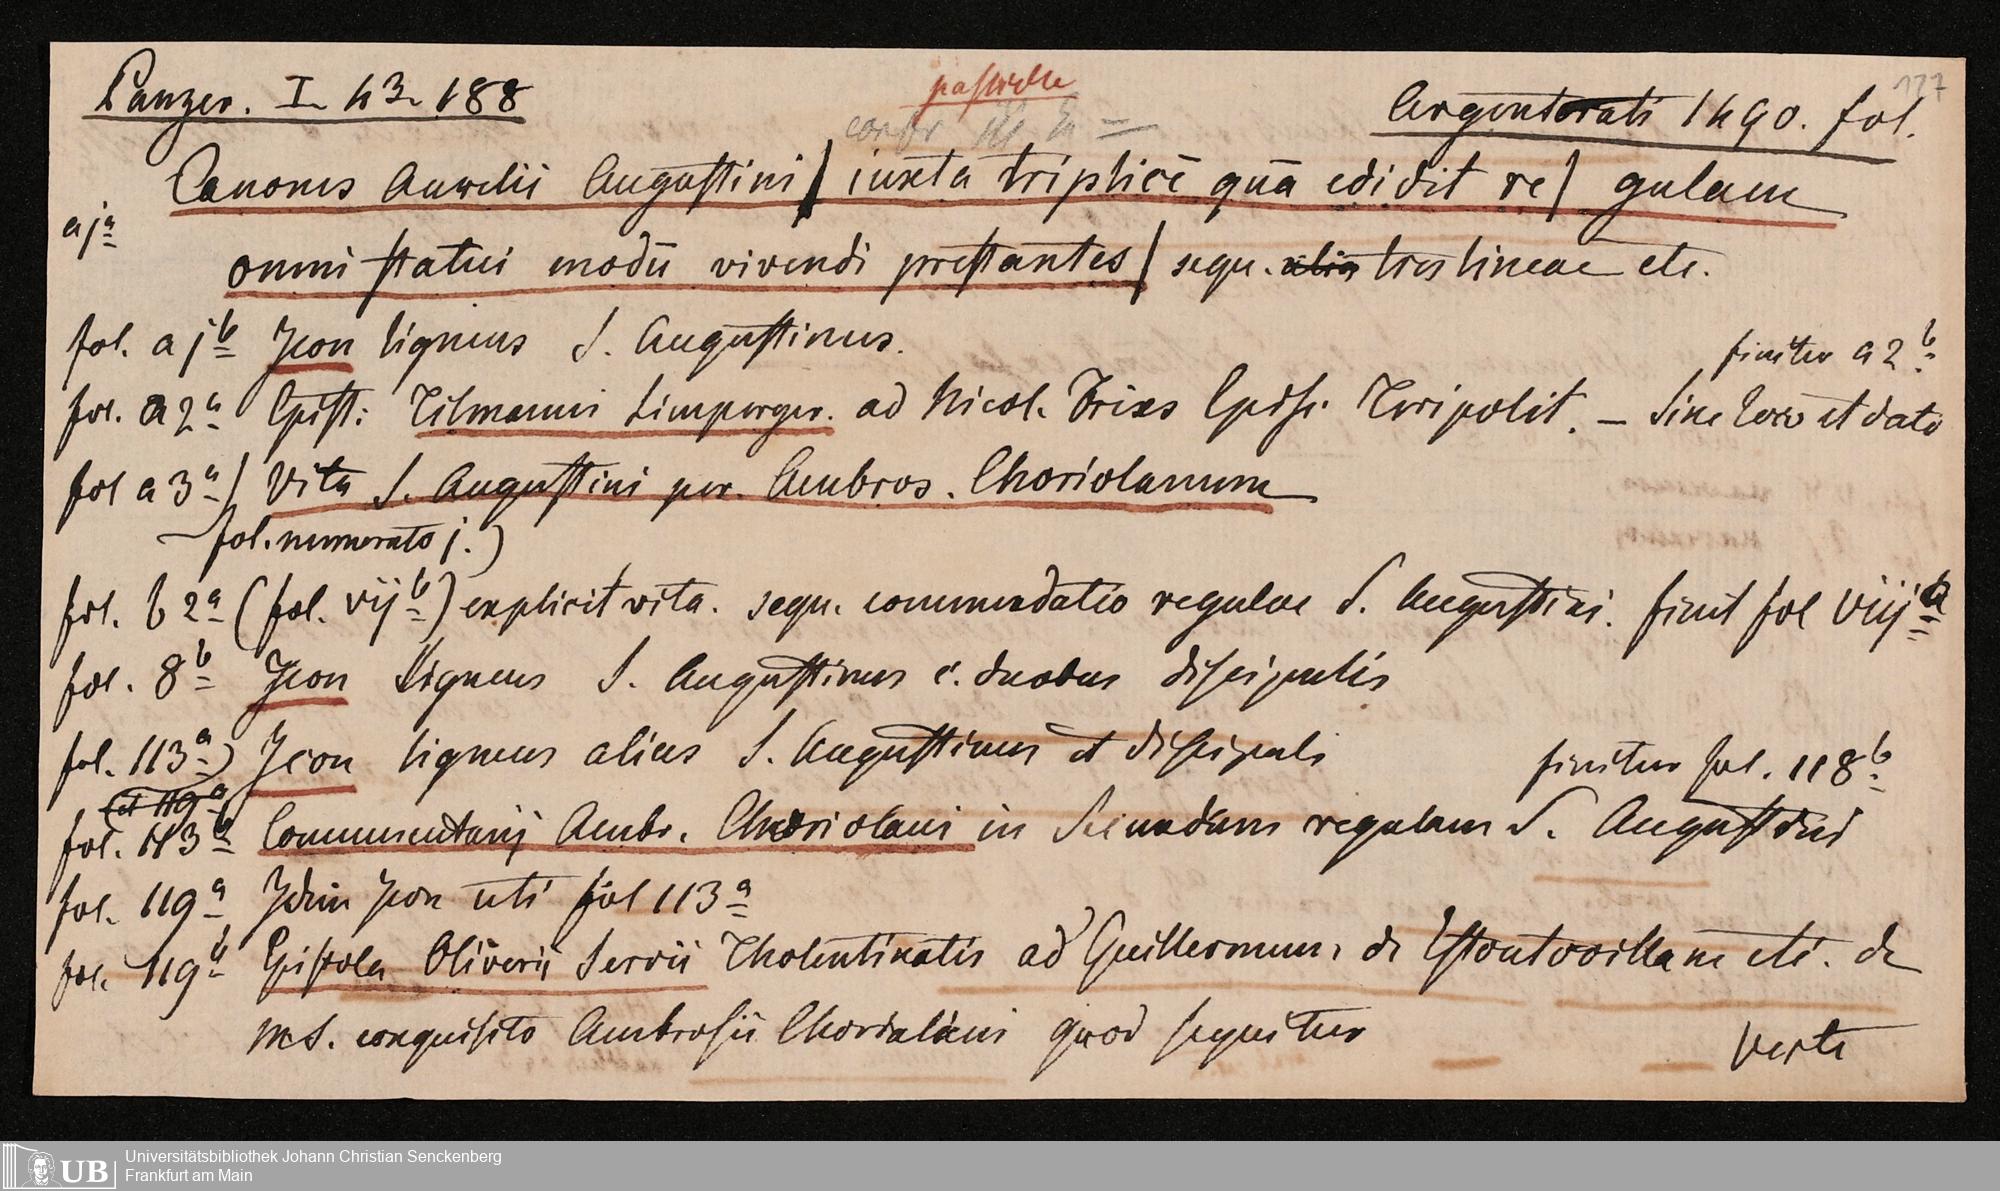 Panzer. I. 43. 188
Argentorati 1490. fol.
137
Canones Aurelii Augustini | iuxta triplicē quā edidit re | gulam
a jª
omni statui modū vivendi prestantes | sequ. alia tres lineae etc.
fol. a j b Icon ligneus S. Augustinus.
finitur a 2 b
fol. a 2 a Epist: Tilmanni Limperger. ad Nicol. Trixs Episc. Teripolit. – Sine loco et dato
fol a 3 a / Vita S. Augustini per. Ambros. Choriolanum
fol. numerato j.)
fol. b 2 a (fol. vij b) explicit vita. sequ. commendatio regulae S. Augustini. finit fol viij a
fol. 8 b Icon Ligneus S. Augustinus c. duobus discipulis
fol. 113 a) Icon ligneus alius S. Augustinus et discipuli
finitur fol. 118 b
(et 119 a
fol. 113 b Commentarij Ambr. Choriolani in Secundam regulam S. Augustini
fol. 119 a Idem Icon uti fol 113 a
fol. 119 b Epistola Oliverii Servii Tholentinatis ad Guillermum, de Estoutovillam etc. de
MS. conquisito Ambrosii Chorialani quod sequitur
Verte
UB
Universitätsbibliothek Johann Christian Senckenberg
Frankfurt am Main